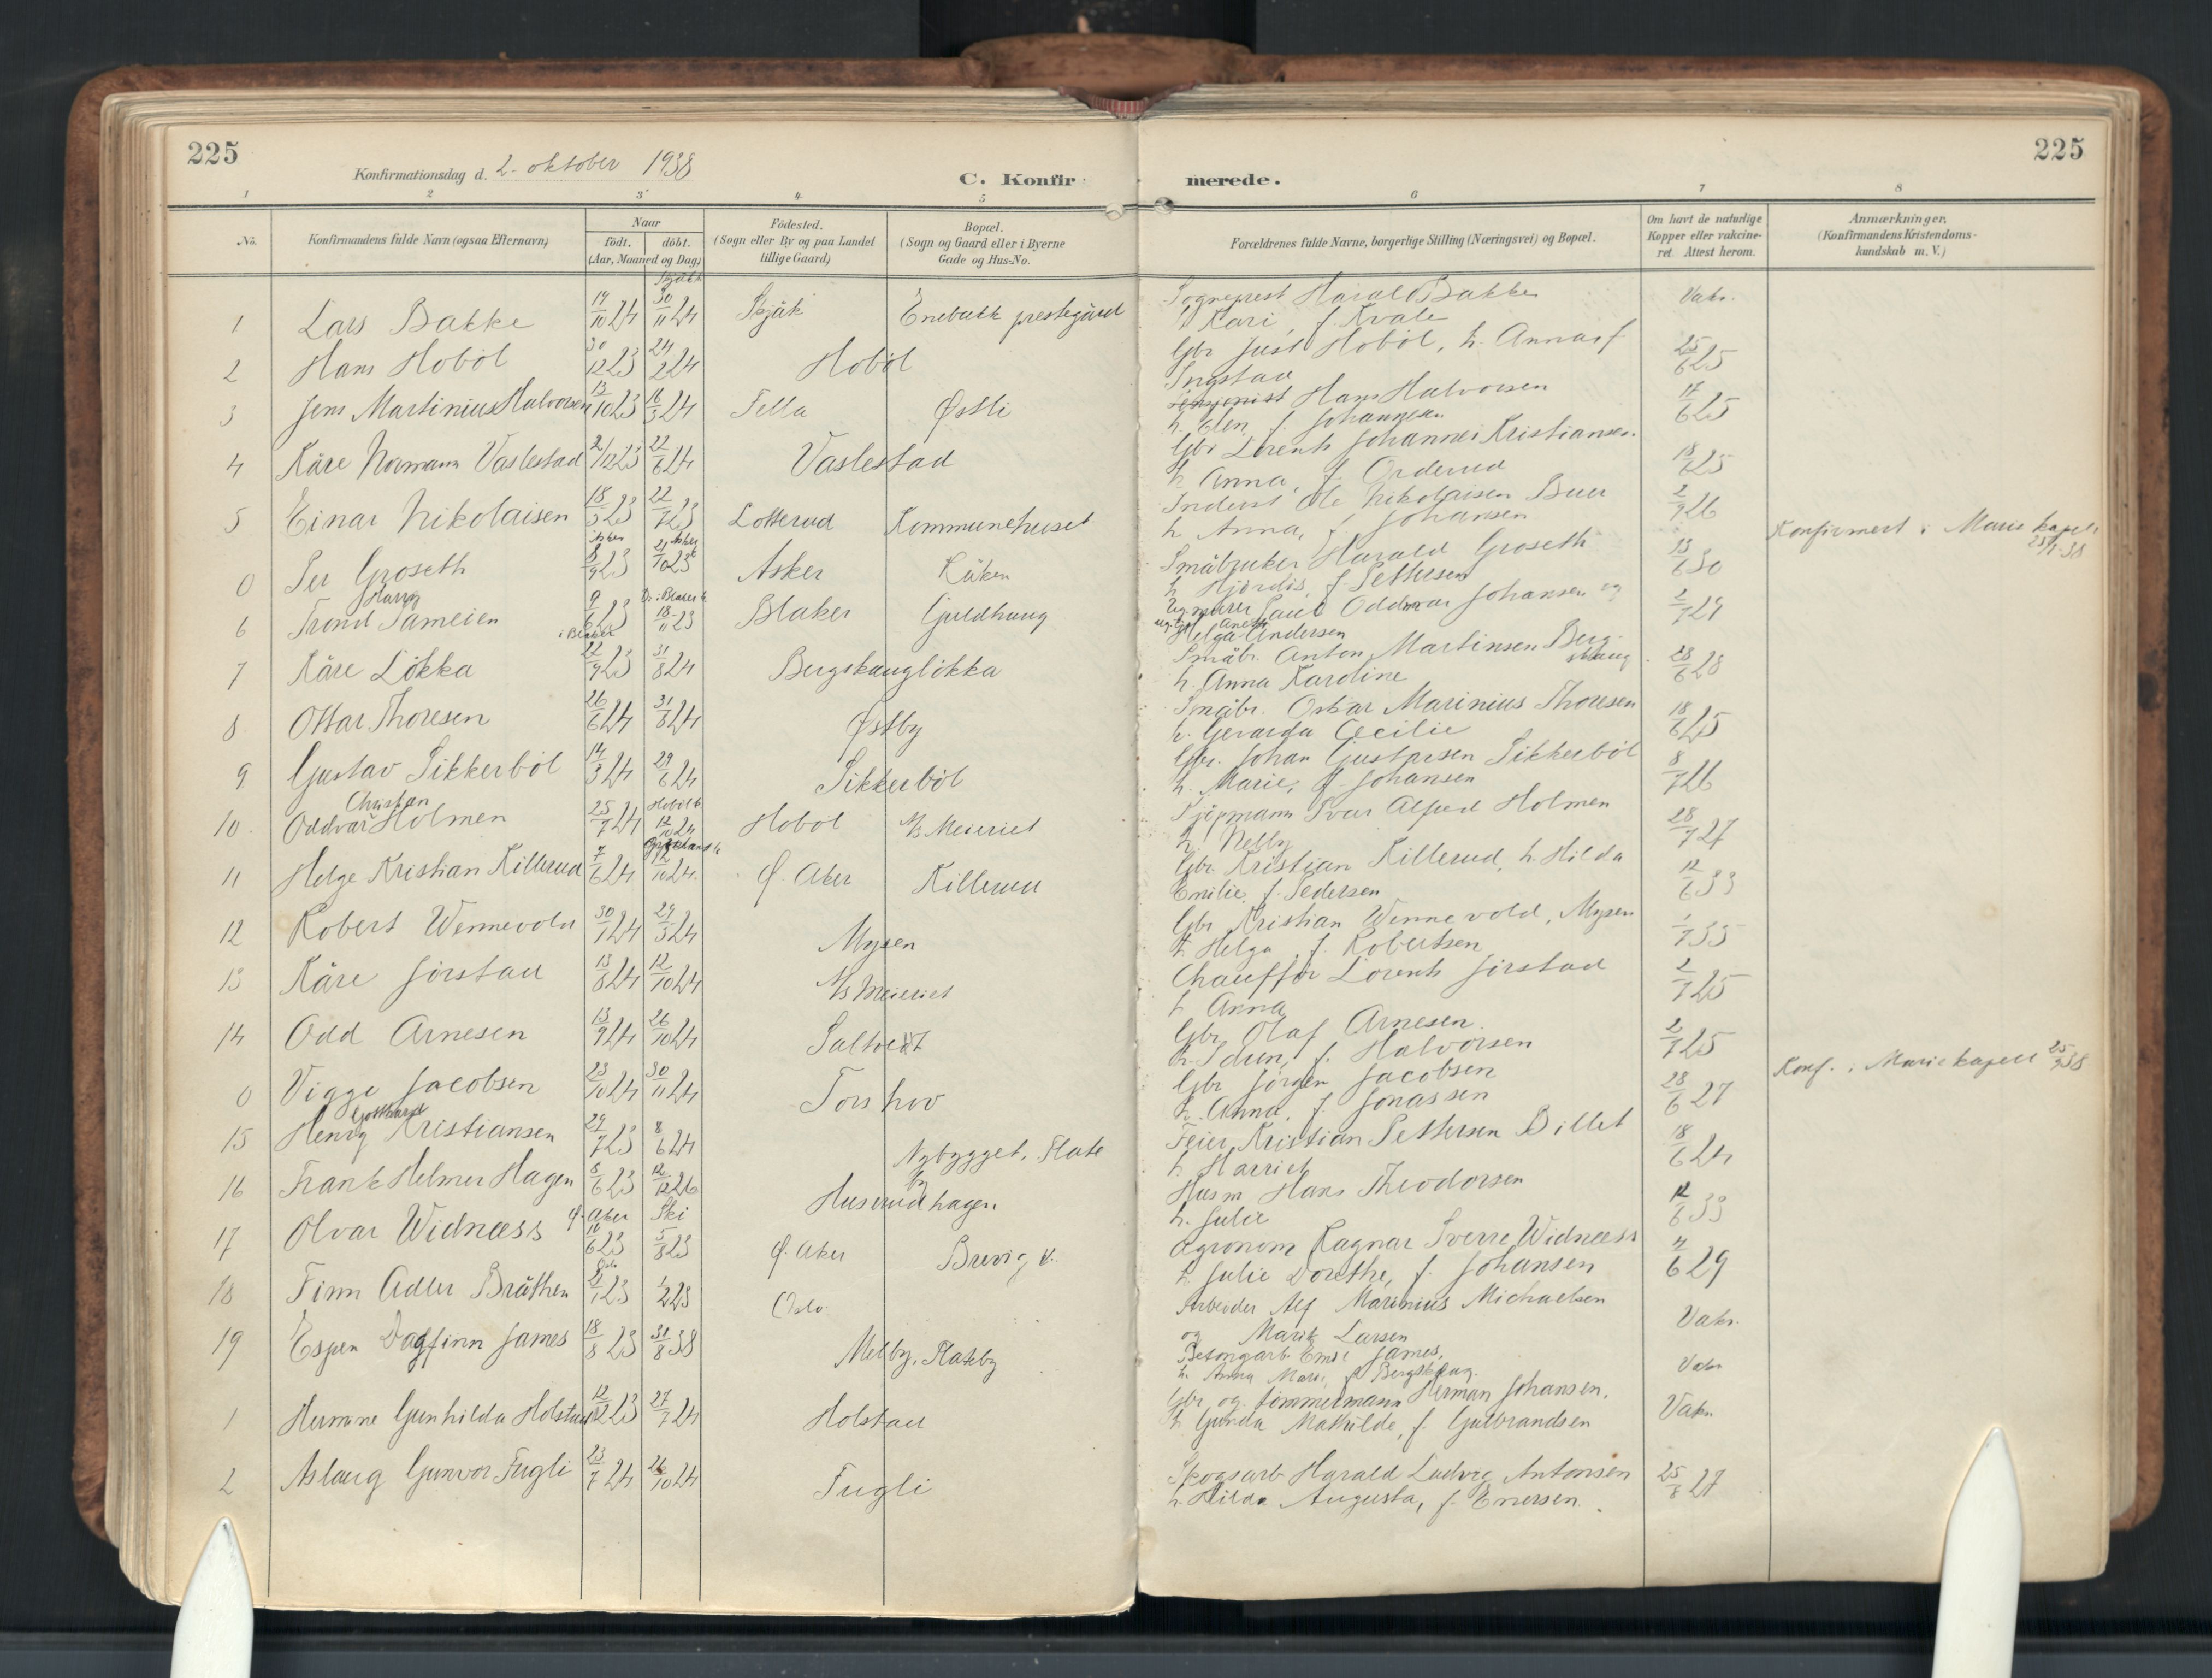 225
225
Konfirmationsdag d. 2. oktober 1938
C. Konfirmerede.
1 2 3 4 5 6 7 8
No. Konfirmandens fulde Navn (ogsaa Efternavn) Naar födt. döbt. (Aar, Maaned og Dag) Födested. (Sogn eller By og paa Landet tillige Gaard) Bopæl. (Sogn og Gaard eller i Byerne Gade og Hus-No. Forældrenes fulde Navne, borgerlige Stilling (Næringsvei) og Bopæl. Om havt de naturlige Kopper eller vakcineret. Attest herom. Anmærkninger. (Konfirmandens Kristendomskundskab m. V.)
1 Lars Bakke 19/10 24 Skjåk 30/11 24 Skjåk Enebakk prestegård Sogneprest Harald Bakke Vaks.
h. Kari, f. Kvale
2 Hans Hobøl 30/12 23 24/2 24 Hobøl Gbr. Just Hobøl, h. Anna, f. 25/6 25
Ingstad
3 Jens Martinius Halvorsen 13/10 23 16/3 24 Østli Hans Halvorsen 17/6 25
h. Elen, f. Johannesen
4 Kåre Normann Vaslestad 2/12 23 22/6 24 Vaslestad Gbr. Lorents Johannes Kristiansen 18/6 25
h. Anna, f. Orderud
5 Einar Nikolaisen 18/3 23 22/7 23 Lotterud Kommunehuset Ole Nikolaisen Buer 2/7 26
h. Anna, f. Johansen
0 Per Groseth 8/9 23 Asker 21/10 23 Asker k. Asker Røken Småbruker Harald Groseth 13/6 30 Konfirmert i Mariekapell
h. Hjørdis, f. Pettersen
6 Trond Harry Tameien 9/6 23 i Blaker 18/11 23 Blaker Guldhaug Paul Oddvar Johansen og 2/7 29
Helga Andersen
7 Kåre Løkka 22/9 23 31/8 24 Bergskaugløkka Småbr. Anton Martinsen Bergskaug 28/6 28
h. Anna Karoline
8 Ottar Thoresen 26/6 24 31/8 24 Østby Småbr. Oskar Marinius Thoresen 18/6 25
h. Gerarda Cecilie
9 Gustav Sikkerbøl 14/3 24 29/6 24 Sikkerbøl Gbr. Johan Gustavsen Sikkerbøl 8/7 26
h. Marie, f. Johansen
10. Oddvar Christian Holmen 25/7 24 Hobøl k. 12/10 24 Hobøl A/s Meieriet Kjøpmann Ivar Alfred Holmen 28/7 27
h. Nelly
11 Helge Kristian Killerud 7/6 24 12/10 24 Ø. Aker Killerud Gbr. Kristian Killerud, h. Hilda 12/6 33
Emilie, f. Pedersen
12 Robert Wennevold 30/1 24 29/5 24 Mysen Gbr. Kristian Wennevold, Mysen 1/7 35
h. Helga, f. Robertsen
13 Kåre Jørstad 13/8 24 12/10 24 A/s Meieriet Chauffør Lorents Jørstad 2/7 25
h. Anna
14 Odd Arnesen 13/9 24 26/10 24 Saltvedt Gbr. Olaf Arnesen 2/7 25
h. Idun, f. Halvorsen
0 Viggo Jacobsen 23/10 24 30/11 24 Torshov Gbr. Jørgen Jacobsen 28/6 27 Konf. i Mariekapell 25/9 38
h. Anna, f. Jonassen
15 Henry Gotthard Kristiansen 29/7 23 8/6 24 Nybygget, Flateby Feier Kristian Pettersen Billet 18/6 24
h. Harriet
16 Frank Helmer Hagen 5/6 23 12/12 26 Huserudhagen Husm. Hans Theodorsen 12/6 33
h. Julie
17 Olvar Widnæss Ø. Aker 16/6 23 Ski 5/8 23 Ø. Aker Brevig v. Agronom Ragnar Sverre Widnæss 4/6 29
h. Julie Dorethe, f. Johansen
18 Finn Adler Bråthen 2/1 23 1/2 23 Oslo Arbeider Alf Marinius Michaelsen Vaks.
og Marit Larsen
19 Espen Dagfinn James 18/8 23 31/8 38 Melby, Flateby Betongarb. Emil James, Vaks
h. Anna Marie, f. Bergskaug.
1 Hermine Gunhilda Holstad 12/12 23 27/7 24 Holstad Gbr. og tømmermann Herman Johansen, Vaks
h. Gunda Mathilde, f. Gulbrandsen
2 Aslaug Gunvor Fugli 23/7 24 26/10 24 Fugli Skogsarb. Harald Ludvig Antonsen 25/8 27
h. Hilda Augusta, f. Enersen.